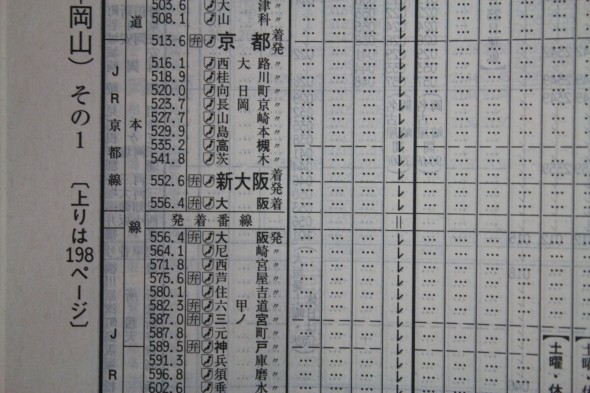 岡山) その1 〔上りは198ページ〕
道本線
JR京都線
JR
503.6 大津 〃
508.1 山科 〃
513.6 弁 京都 着発
516.1 西大路 〃
518.9 桂川 〃
520.0 向日町 〃
523.7 長岡京 〃
527.7 山崎 〃
529.9 島本 〃
535.2 高槻 〃
541.8 茨木 〃
552.6 弁 新大阪 着発
556.4 弁 大阪 着
発着番線
556.4 弁 大阪 発
564.1 尼崎 〃
571.8 西宮 〃
575.6 弁 芦屋 〃
580.1 住吉 〃
582.3 弁 六甲道 〃
587.0 弁 三ノ宮 〃
587.8 元町 〃
589.5 弁 神戸 〃
591.3 兵庫 〃
596.8 須磨 〃
602.6 垂水 〃
【土曜・休
【土曜・休